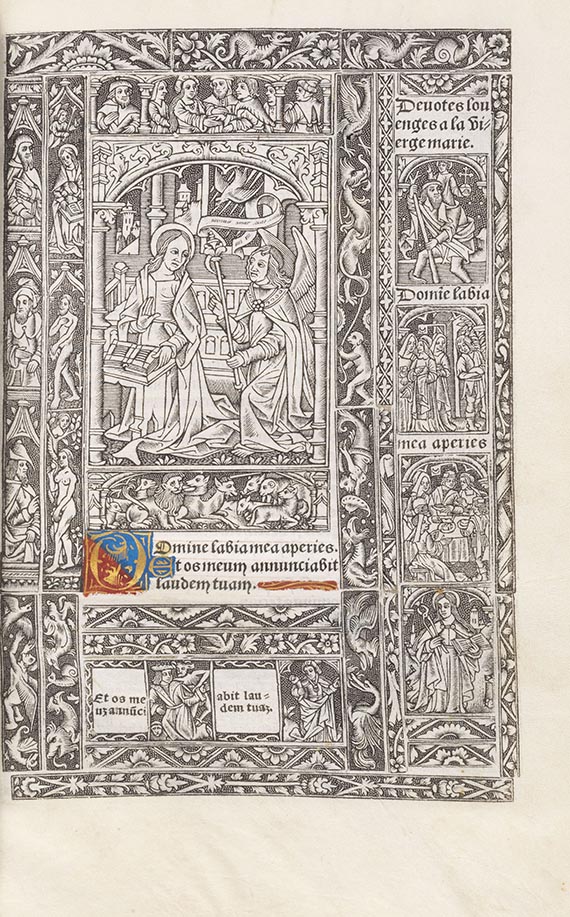 Deuotes lou
enges a la Vi-
erge marie.
Domīe labia
mea aperies
Omine labia mea aperies.
Et os meum annunciabit
laudem tuam.
Et os me
abit lau-
dem tuaz.